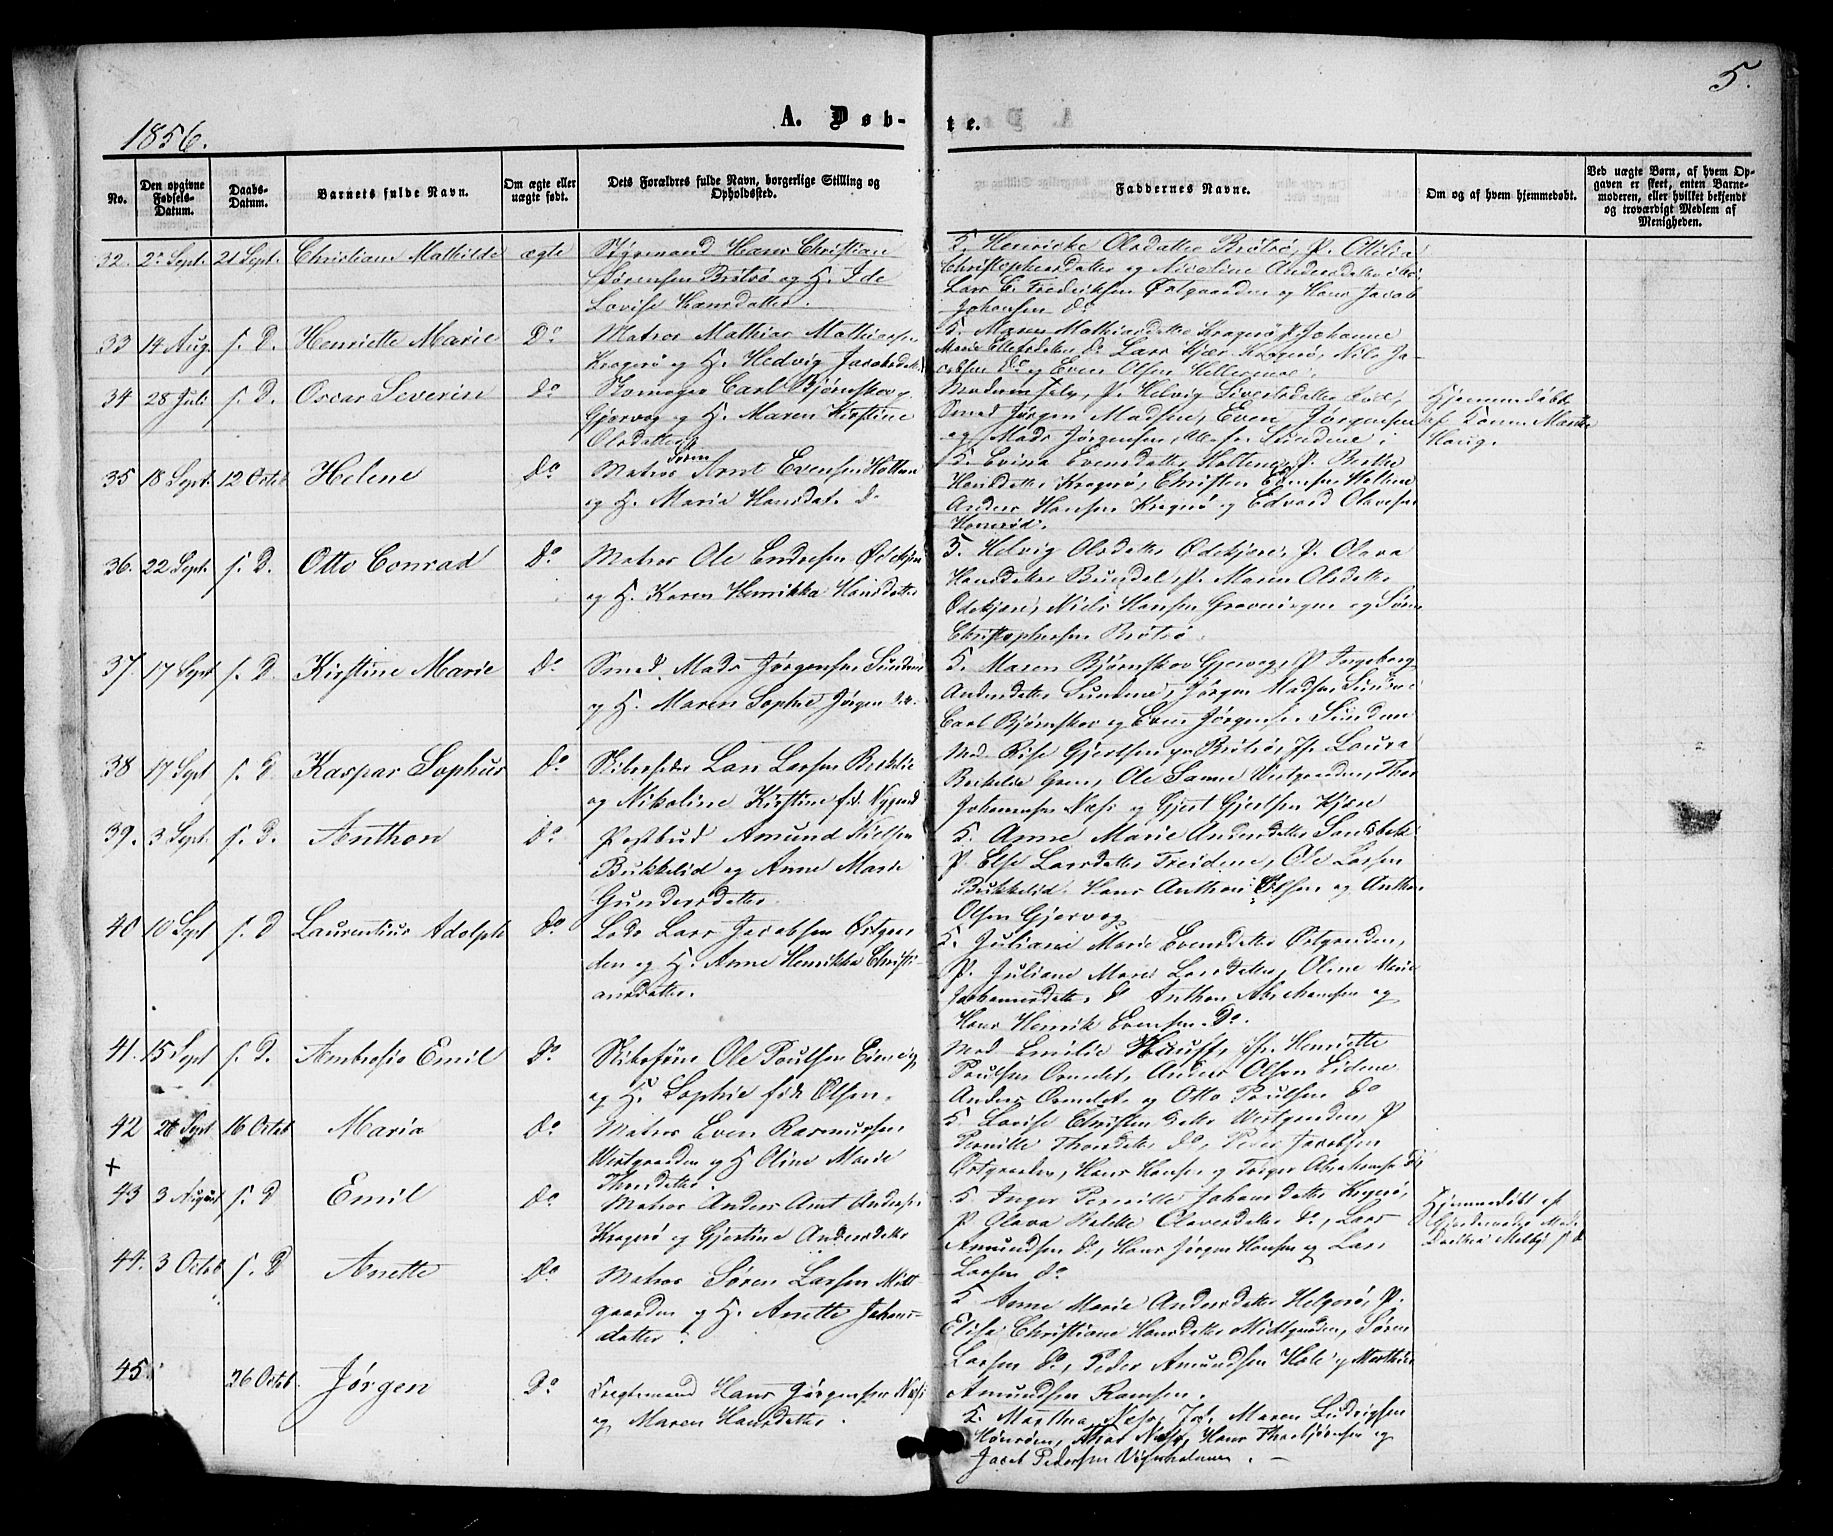 5.
1856.
A. Døb-
te.
No.
Den opgivne Fødsels-Datum.
Daabs-Datum.
Barnets fulde Navn.
Om ægte eller uægte født.
Dets Forældres fulde Navn, borgerlige Stilling og Opholdssted.
Faddernes Navne.
Om og af hvem hjemmedøbt.
Ved uægte Børn, af hvem Opgaven er skeet, enten Barnemoderen, eller hvilket bekjendt og troværdigt Medlem af Menigheden.
32. 2 Sept. 21 Sept. Christiane Mathilde ægte Styrmand Hans Christian
Sørensen Brötsö og H. Ide
Lovise Hansdatter.
K. Henricke Olsdatter Brötsö, P. Otilia
Christophersdatter og Nicoline Andersdatter
Lars C. Fredriksen Østgaarden og Hans Jacob
Johansen Do
33 14 Aug. s. D. Henriette Marie Do Matros Mathias Mathiassen
Kragerø og H. Hedvig Jacobsdatter
K. Maren Mathiasdatter Kragerø, P. Johanne
Marie Ellefsdatter Do Lars Kjær Kragerø, Nils Ja-
cobsen Do og Even Olsen
34 28 Juli s. D. Oscar Severin Do Skomager Carl Bjørnskov
Gjervog og H. Maren Kirstine
Olsdatter
Moderen selv, P. Helvig Sivertsdatter
Smed Jørgen Madsen, Even Jørgensen
og Mads Jørgensen, Sundene
Hjemmedøbt
af
Haug.
35 18 Sept. 12 Octob Helene Do Matros Søren Arnt Evensen Holtene
og H. Maria Hansdat. Do
K. Evina Evensdatter Holtene, P. Berthe
Hansdatter Kragerø, Christen Evensen Holtene
Anders Hansen Kragerø og Edvard Olavesen
36. 22 Sept. s. D. Otto Conrad Do Matros Ole Endresen Ødekjære
og H. Karen Henrikka Hansdatter
K. Helvig Olsdatter Ødekjære, P. Olava
Hansdatter Bugdal, P. Maren Olsdatter
Ødekjære, Niels Hansen og Søren
Christophersen Brötsö.
37. 17 Sept s. D. Kirstine Marie Do Smed Mads Jørgensen Sundene
og H. Maren Sophie Jørgensd.
K. Maren Bjørnskov Gjervog, P. Ingeborg
Andersdatter Sundene, Jørgen Madsen Sundene
Carl Bjørnskov og Even Jørgensen Sundene
38 17 Sept s. D Kaspar Sophus Do Skibsfører Lars Larsen Berkelie
og Nikoline Kirstine fød. Nygaard
Mad. Gjertsen Brötsö, Jfr. Laura
Berkelie Ole Sanne Vestgaarden, Thor
Johannesen Næs og Gjert Gjertsen Kjære
39. 3 Sept. s. D. Anthon Do Postbud Amund Nielsen
Bukkelid og Anne Marie
Gundersdatter
K. Anne Marie Andersdatter Sandbek
P. Else Larsdatter Treidene, Ole Larsen
Bukkelid, Hans Anthon Olsen og Anthon
Olsen Gjervog
40 10 Sept s. D Laurentius Adolph Do Lods Lars Jacobsen Østgaar
den og H. Anne Henrikka Christi-
ansdatter.
K. Juliane Marie Evensdatter Østgaarden,
P. Juliane Marie Larsdatter, Oline Marie
Johannesdatter Do Anthon Abrahamsen og
Hans Henrik Evensen Do.
41. 15 Sept s. D. Ambrosio Emil Do Skibsfører Ole Poulsen
og H. Sophie fød Olsen.
Mad Emilie Hauff, Jfr. Henriette
Poulsen Ormelet, Anders Olsen Eidene
Anders Ormelet og Otto Poulsen Do
42 26 Sept 16 Octob Maria Do Matros Even Rasmussen
Westgaarden og H Oline Marie
Thordatter
K. Lovise Christensdatter Westgaarden, P
Pernille Thorsdatter Do, Peder Jacobsen
Østgaarden, Hans Hansen og Torger Abrahamsen Do
+
43 3 August s. D Emil Do Matros Anders Arnt Andersen
Kragerø og Gjertine Andersdatter
K. Inger Pernille Johansdatter Kragerø,
P. Olava Bolette Olavesdatter Do, Lars
Amundsen Do, Hans Jørgen Hansen og Lars
Larsen Do
Hjemmedøbt af
Gjordemoder Mad.
Dorthea Melby
44. 3 Octob s. D Anette Do Matros Søren Larsen Midt
gaarden og H. Anette Johans-
datter
K Anne Marie Andersdatter Helgerø, P.
Elise Christiane Hansdatter Midtgaarden, Søren
Larsen Do, Peder Amundsen Hole og Mathias
Amundsen Ramsen.
45 26 Octob Jørgen Do Fragtemand Hans Jørgensen Næs
og Maren Hansdatter.
K. Marthea Næs, Jfr. Maren Ludvigsen
Thor Næs, Hans Thorbjørnsen og
Jacob Pedersen